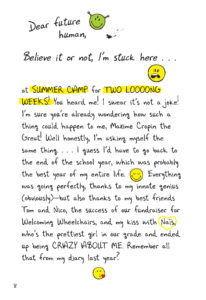 Dear future
human,
Believe it or not, I'm stuck here . . .
at SUMMER CAMP for TWO LOOOONG
WEEKS! You heard me! I swear it's not a joke!
I'm sure you're already wondering how such a
thing could happen to me, Maxime Crapin the
Great! Well honestly, I'm asking myself the
same thing. . . . I guess I'd have to go back to
the end of the school year, which was probably
the best year of my entire life. Everything
was going perfectly, thanks to my innate genius
(obviously)—but also thanks to my best friends
Tom and Nico, the success of our fundraiser for
Welcoming Wheelchairs, and my kiss with Naïs,
who's the prettiest girl in our grade and ended
up being CRAZY ABOUT ME. Remember all
that from my diary last year?